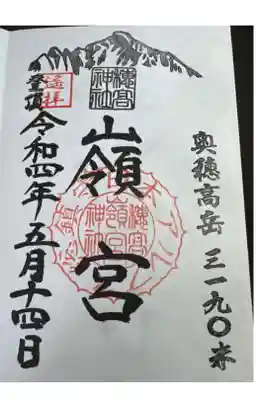 奥穂高岳 三一九〇米
穂高
神社
山嶺宮
穂高
嶺宮
神社
遥拝
登頂 令和四年五月十四日